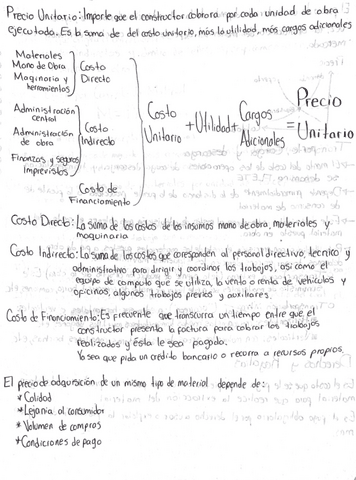 Precio Unitario: Importe que el constructor cobrara por cada unidad de obra
ejecutada. Es la suma de del costo unitario, mas la utilidad, más cargos adicionales
Materiales
Mano de Obra
Maquinaria y
herramientas
Costo
Directo
Administración
central
Administración
de obra
Finanzas y seguros
Imprevistos
Costo
Indirecto
Costo de
Financiamiento
Costo
Unitario
+Utilidad+
Cargos
Adicionales
=
Precio
Unitario
Costo Directo: La suma de los costos de los insumos mano de obra, materiales y
maquinaria
Costo Indirecto: La suma de los costos que corresponden al personal directivo, tecnico y
administrativo para dirigir y coordinar los trabajos, asi como el
equipo de computo que se utiliza, la venta o renta de vehículos y
oficinas, algunos trabajos previos y auxiliares.
Costo de Financiamiento: Es frecuente que transcurra un tiempo entre que el
constructor presenta la factura para cobrar los trabajos
realizados y ésta le sea pagada.
Ya sea que pida un credito bancario o recurra a recursos propios.
El precio de adquisición de un mismo tipo de material depende de:
* Calidad
* Lejania al consumidor
* Volumen de compras
* Condiciones de pago